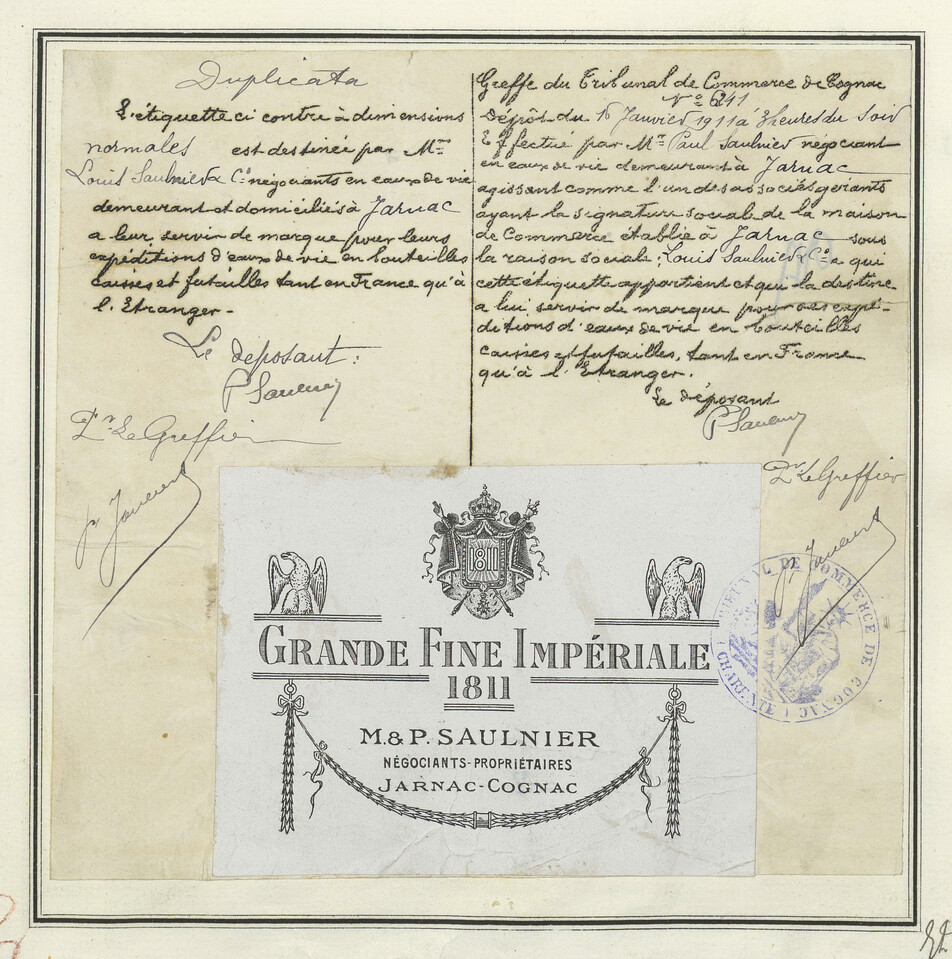 Duplicata
L'étiquette ci contre à dimensions
normales est destinée par Mrs
Louis Saulnier & Co négociants en eaux de vie
demeurant et domiciliés à Jarnac
a leur servir de marque pour leurs
expéditions d'eaux de vie en bouteilles
caisses et futailles tant en France qu'à
l'Etranger.
Le déposant :
P Saulnier
Pr Le Greffier
Greffe du Tribunal de Commerce de Cognac
No 6241
Dépôt du 16 Janvier 1911 à 3 heures du soir
Effectué par Mr Paul Saulnier négociant
en eaux de vie demeurant à Jarnac
agissant comme l'un des associés gérants
ayant la signature social de la maison
de Commerce établie à Jarnac sous
la raison sociale : Louis Saulnier & Co a qui
cette étiquette appartient et qui la destine
a lui servir de marque pour ses expé-
ditions d'eaux de vie en bouteilles
caisses et futailles, tant en France
qu'à l'Etranger.
Le déposant
P Saulnier
Pr Le Greffier
1811
GRANDE FINE IMPÉRIALE
1811
M. & P. SAULNIER
NÉGOCIANTS-PROPRIÉTAIRES
JARNAC-COGNAC
TRIBUNAL DE COMMERCE DE COGNAC
(CHARENTE)